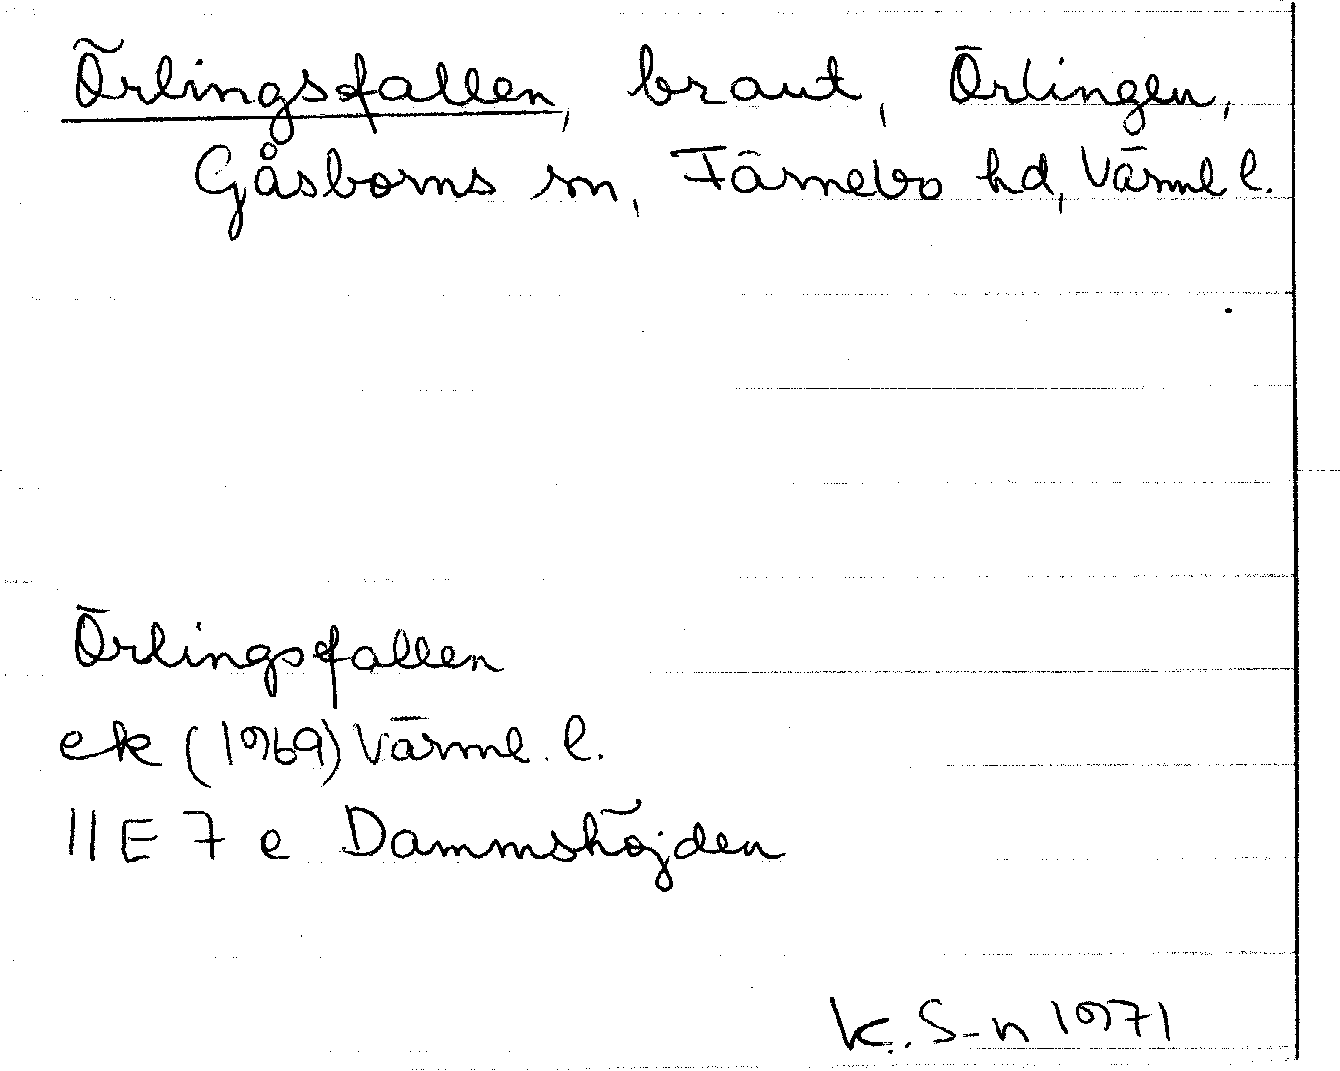 Örlingsfallen, braut, Örlingen,
Gåsborns sn, Färnebo hd, Värml l.
Örlingsfallen
ek (1969) Värml. l.
11 E 7 e Dammshöjden
K. S-n 1971